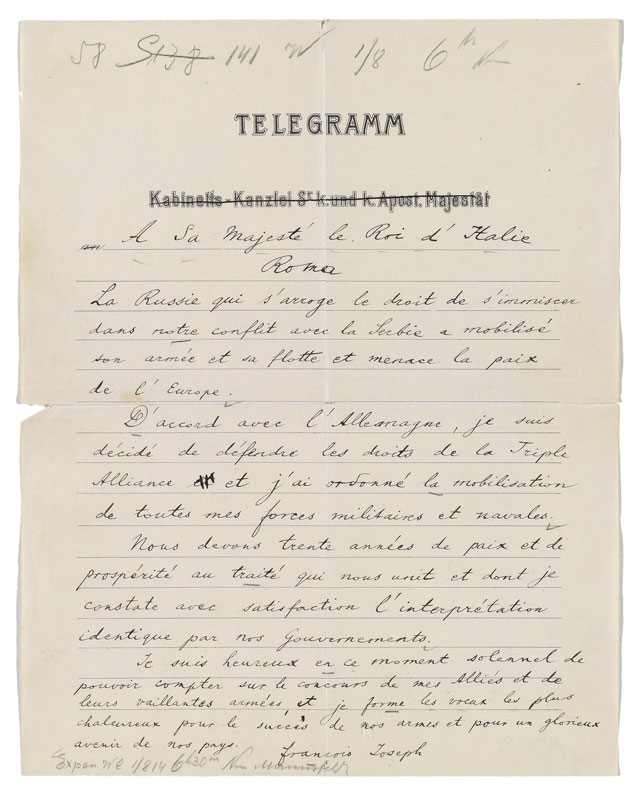 58 St3g 141 W 1/8 6h
TELEGRAMM
Kabinetts-Kanzlei Sr. k. und k. Apost. Majestät
A Sa Majesté le Roi d'Italie
Roma
La Russie qui s'arroge le droit de s'immiscer
dans notre conflit avec la Serbie a mobilisé
son armée et sa flotte et menace la paix
de l'Europe.
D'accord avec l'Allemagne, je suis
décidé de défendre les droits de la Triple
Alliance et j'ai ordonné la mobilisation
de toutes mes forces militaires et navales.
Nous devons trente années de paix et de
prospérité au traité qui nous unit et dont je
constate avec satisfaction l'interprétation
identique par nos Gouvernements.
Je suis heureux en ce moment solennel de
pouvoir compter sur le concours de mes Alliés et de
leurs vaillantes armées, et je forme les voeux les plus
chaleureux pour le succès de nos armes et pour un glorieux
avenir de nos pays.
François Joseph
1/8 14 6h30m